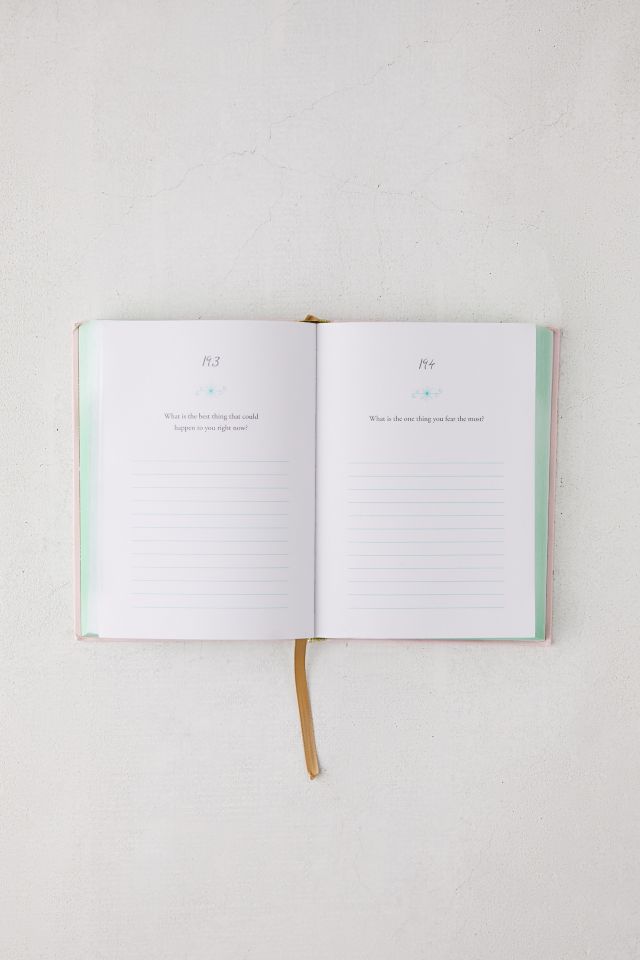 193
What is the best thing that could
happen to you right now?
194
What is the one thing you fear the most?